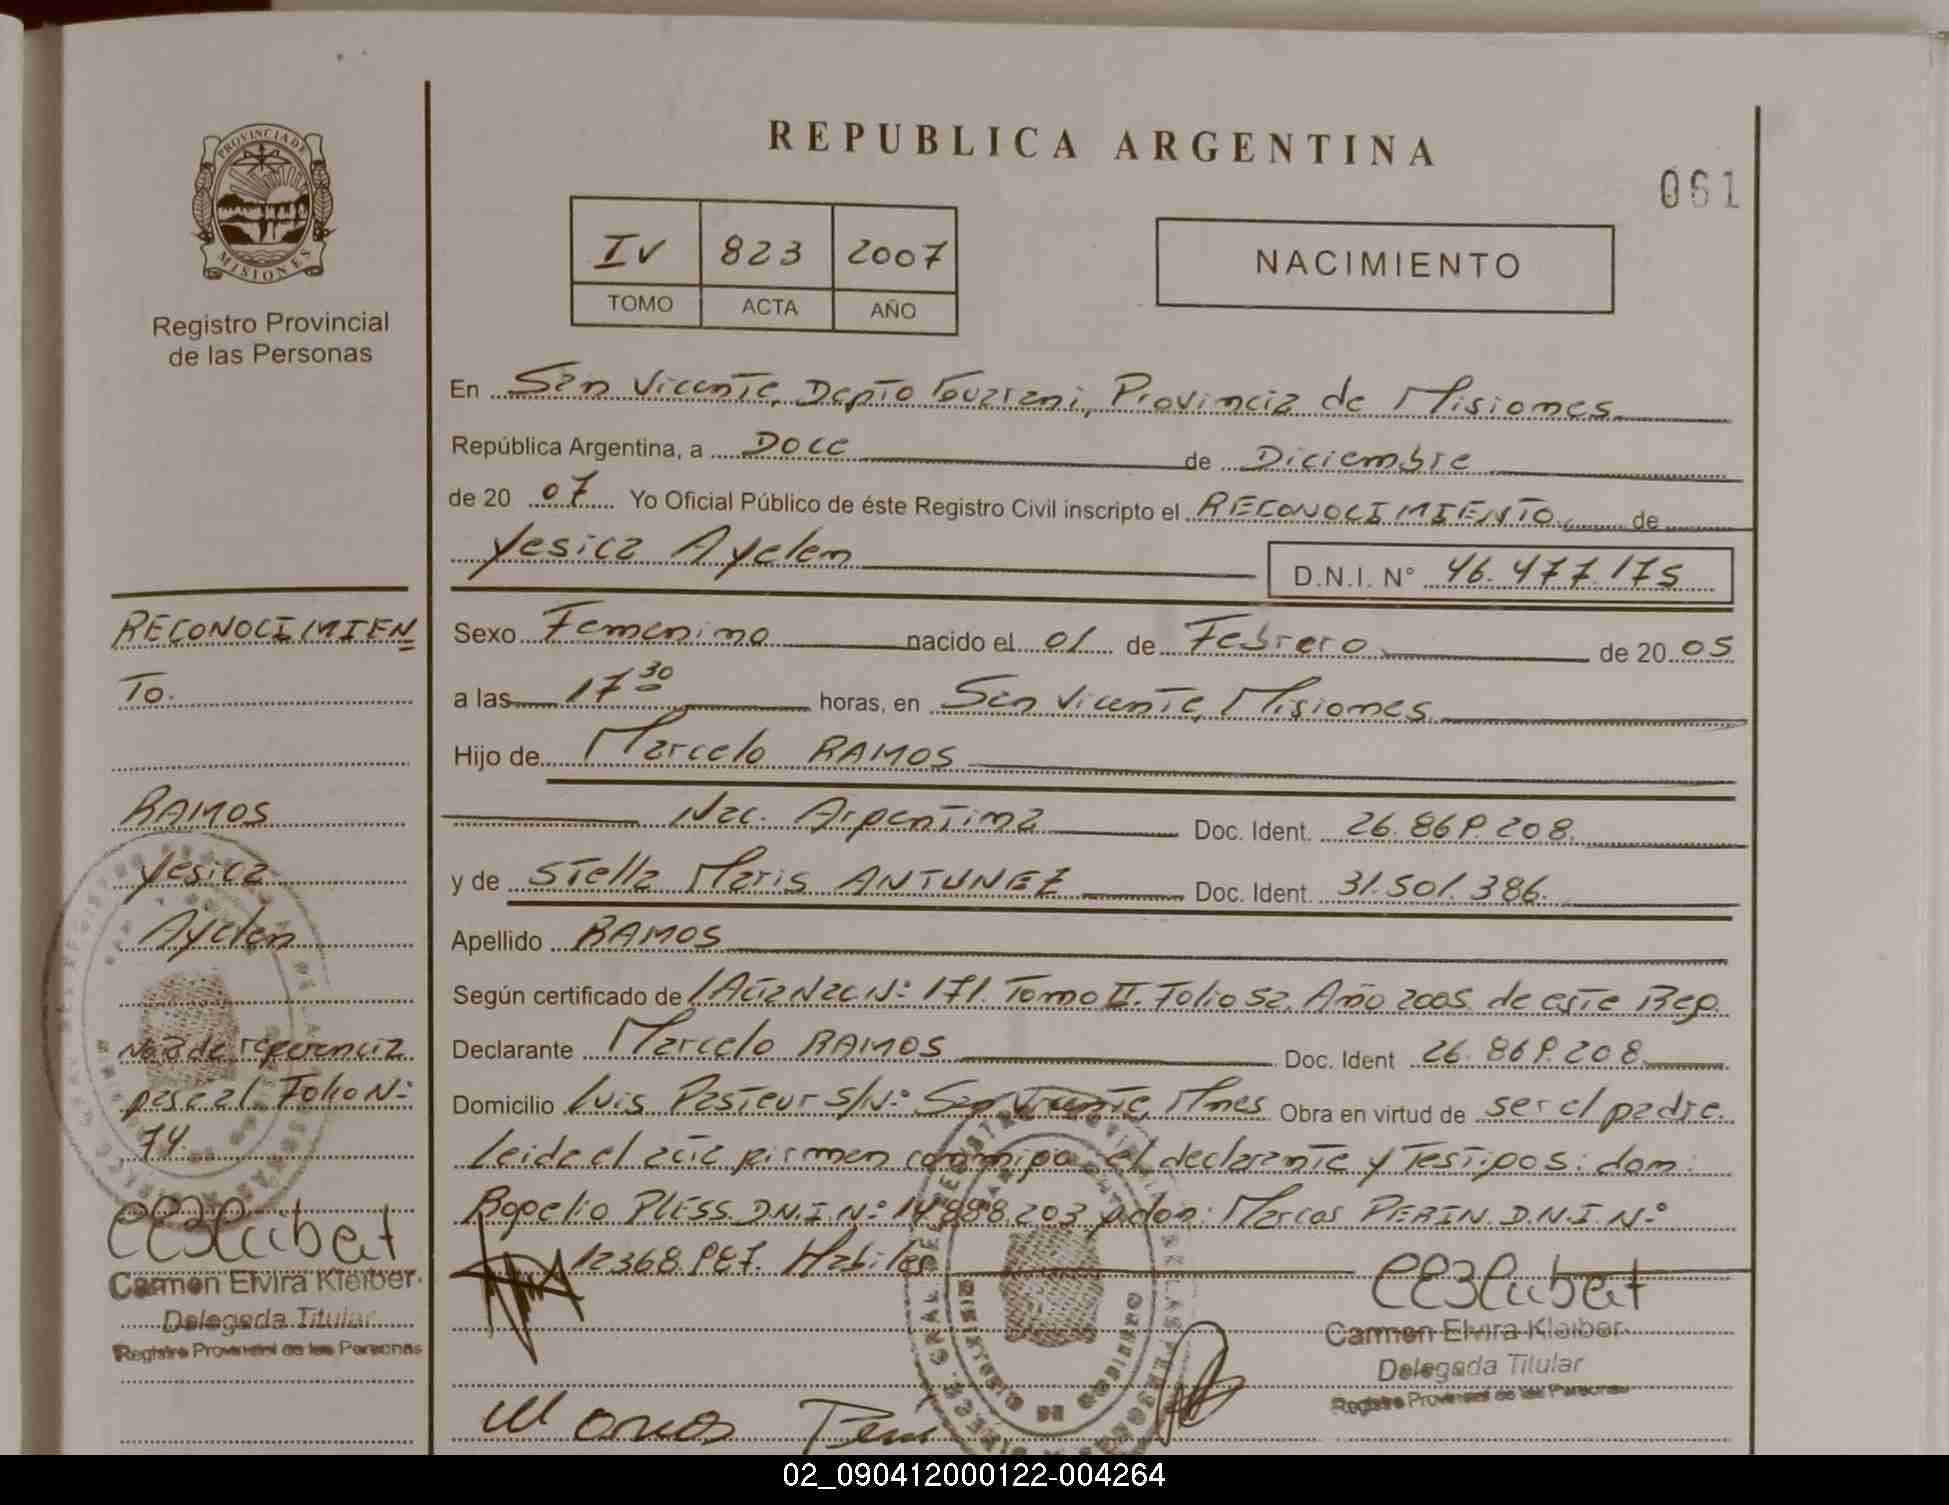 REPUBLICA ARGENTINA
061
PROVINCIA DE
MISIONES
Registro Provincial
de las Personas
IV 823 2007
TOMO ACTA AÑO
NACIMIENTO
En San Vicente, Depto Guarani, Provincia de Misiones
República Argentina, a Doce de Diciembre
de 20 07 Yo Oficial Público de éste Registro Civil inscripto el RECONOCIMIENTO de
Yesica Ayelen D.N.I. N° 46.477.175
Sexo Femenino nacido el 01 de Febrero de 20 05
a las 17 30 horas, en San Vicente, Misiones
Hijo de Marcelo RAMOS
Nac. Argentina Doc. Ident. 26.869.208.
y de Stella Maris ANTUNEZ Doc. Ident. 31.501.386.
Apellido RAMOS
Según certificado de /Acta Nac N° 171. Tomo II. Folio 52. Año 2005 de este Reg.
Declarante Marcelo RAMOS Doc. Ident 26.869.208
Domicilio Luis Pasteur S/N° San Vicente, Mnes Obra en virtud de ser el padre.
Leida el acta firman conmigo el declarante y Testigos: don:
Rogelio PLESS D.N.I N° 14.898.203 y don: Marcos PERIN D.N.I N°
12368.987. Habiles
RECONOCIMIEN
To.
RAMOS
Yesica
Ayelen
Nota de referencia
pasa al Folio N°
74.
Carmen Elvira Kleiber
Delegada Titular
Registro Provincial de las Personas
Carmen Elvira Kleiber
Delegada Titular
Registro Provincial de las Personas
02_090412000122-004264